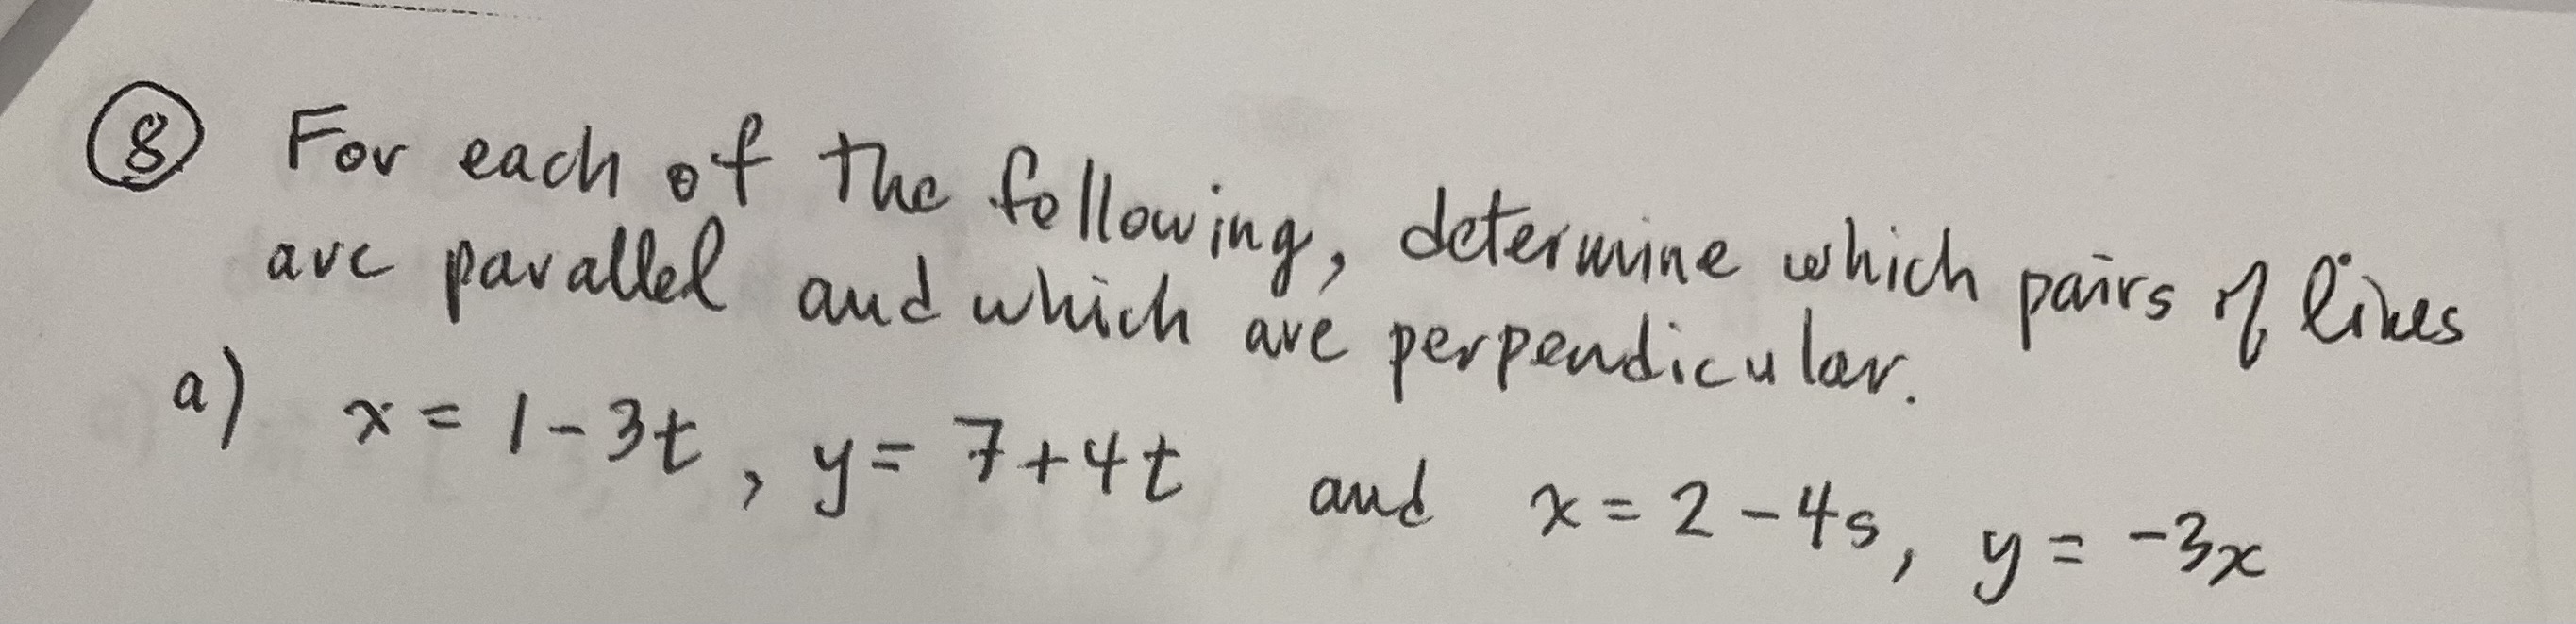 ⑧ For each of the following, determine which pairs of lines
are parallel and which are perpendicular.
a) x = 1 - 3t, y = 7 + 4t and x = 2 - 4s, y = -3x